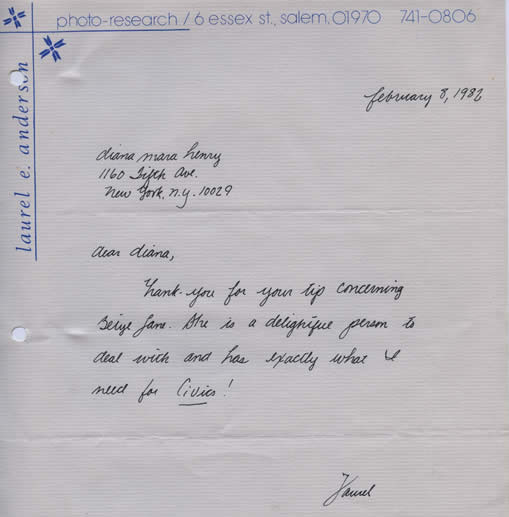 photo-research / 6 essex st., salem, 01970 741-0806
laurel e. anderson
february 8, 1982
diana mara henry
1160 Fifth Ave.
New York, n.y. 10029
dear diana,
Thank-you for your tip concerning
Jane. She is a delightful person to
deal with and has exactly what I
need for Civics!
Laurel